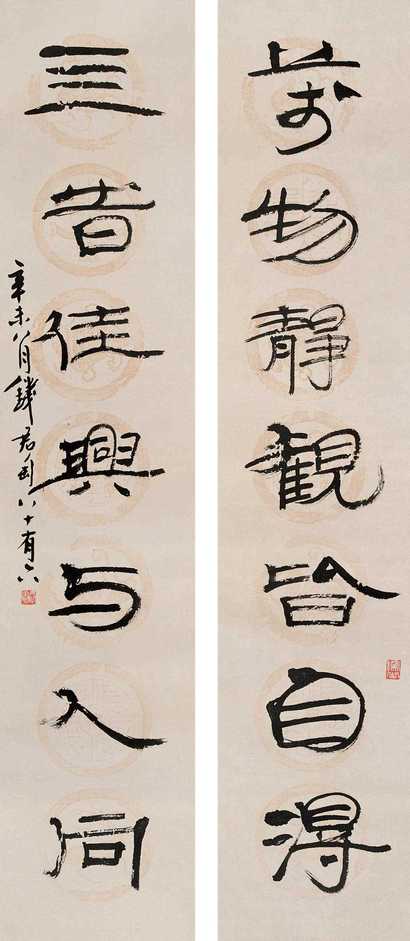 萬物靜觀皆自得
亖旹佳興与人同
辛未八月錢君匋八十有六